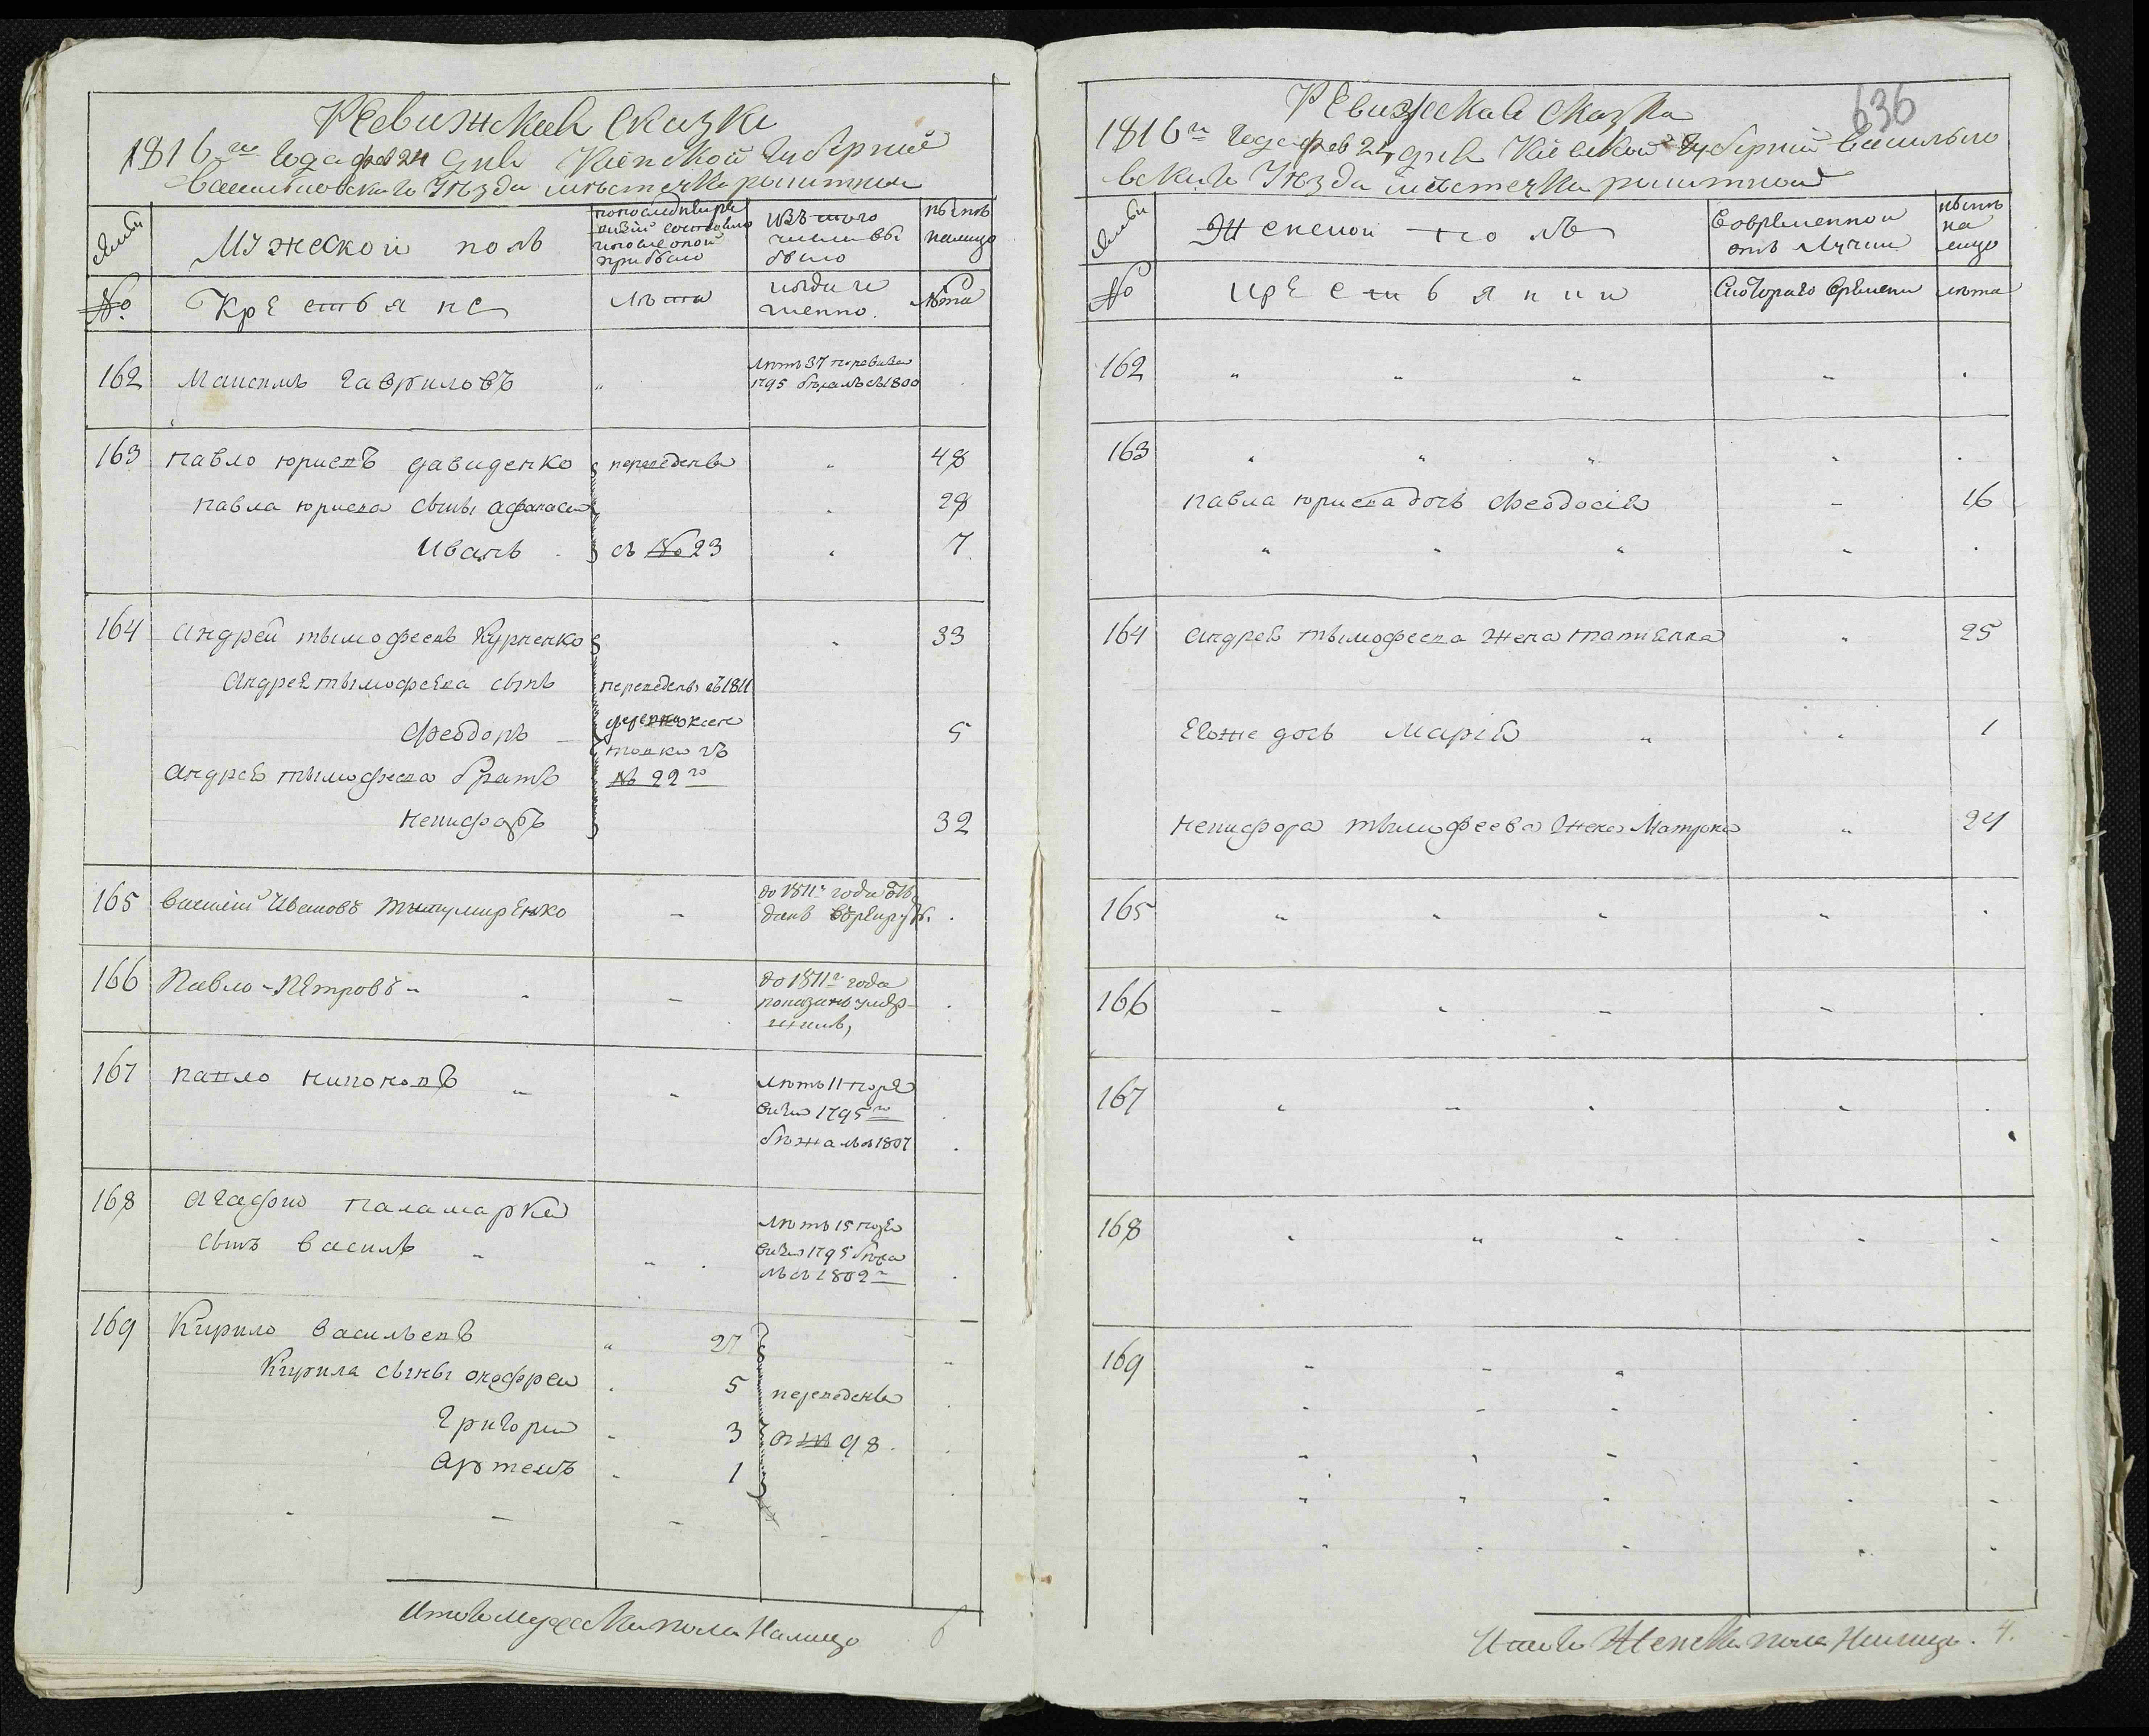 Ревижская сказка
1816го Года фев 24 дня Кіевской Губерніи
Васильковскаго Уѣзда мѣстечка ракитной
Семьи
Мужеской полъ
по последней ре
визіи состояло
и после оной
прибыло
Изъ того
числа вы
было
нынѣ
налицо
№
Крестьяне
лѣта
когда и
менно.
лѣта
162 Максимъ Гавриловъ " лѣтъ 37 по ревизіи
1795 бѣжалъ съ 1800
163 павло юриевъ давиденко переведены " 48
павла юриева сыны афанасей " 28
Иванъ съ № 23 " 7
164 андрей тымофеевъ Курченко " 33
андрея тымофеева сынъ переведены съ 1811
феодоръ 5
товка съ
андрея тымофеева братъ № 22го
никифоръ 32
165 Василий Ивановъ - до 1811г года отъ
данъ в рекруты.
166 Павло - Петровъ - - до 1811го года
показанъ умер
шимъ,
167 павло никоновъ " " лѣтъ 11 по ре
визіи 1795го
бѣжалъ въ 1807
168 агафию паламарки
сынъ василь " " лѣтъ 15 по ре
визіи 1795 бѣжа
лъ съ 1802го
169 Кирило васильевъ " 27
Кирила сыны онофрей 5 переведены
григорий 3 98.
артемъ 1
Итого мужеска пола налицо 6
636
Ревижская сказка
1816го Года фев 24 дня Кіевской Губерніи Василько
вскаго Уѣзда мѣстечка ракитной
Семьи
Женской полъ
В овременной
отлучки
нынѣ
на
лицо
№
крестьянки
Съ котораго времени
лѣта
162 " " " " .
163 " " " " .
павла юриева дочь феодосія - 16
" " " " .
164 андрея тымофеева жена татіанна " 25
Егоже дочь Марія " " 1
никифора тымофеева жена Матрона " 24
165 " " " " .
166 " " " " .
167 " " " " .
168 " " " " "
169 " " "
Итого Женска пола Налицо. 4.